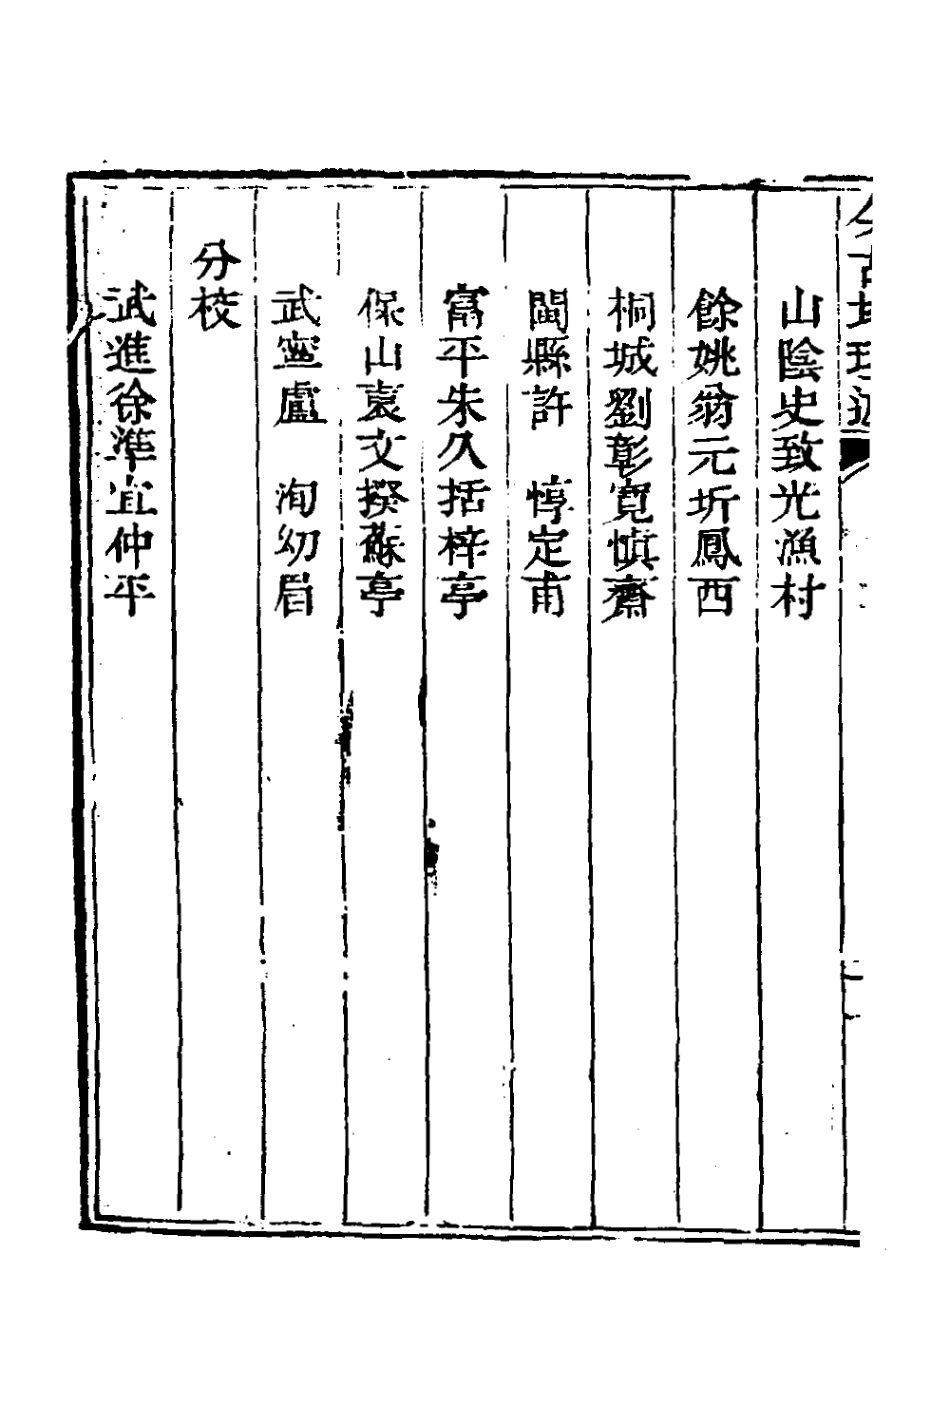 山陰史致光漁村
餘姚翁元圻鳳西
桐城劉彰寬慎齋
閩縣許　惇定甫
富平朱久括梓亭
保山袁文揆蘇亭
武寧盧　洵幼眉
分校
武進徐準宜仲平